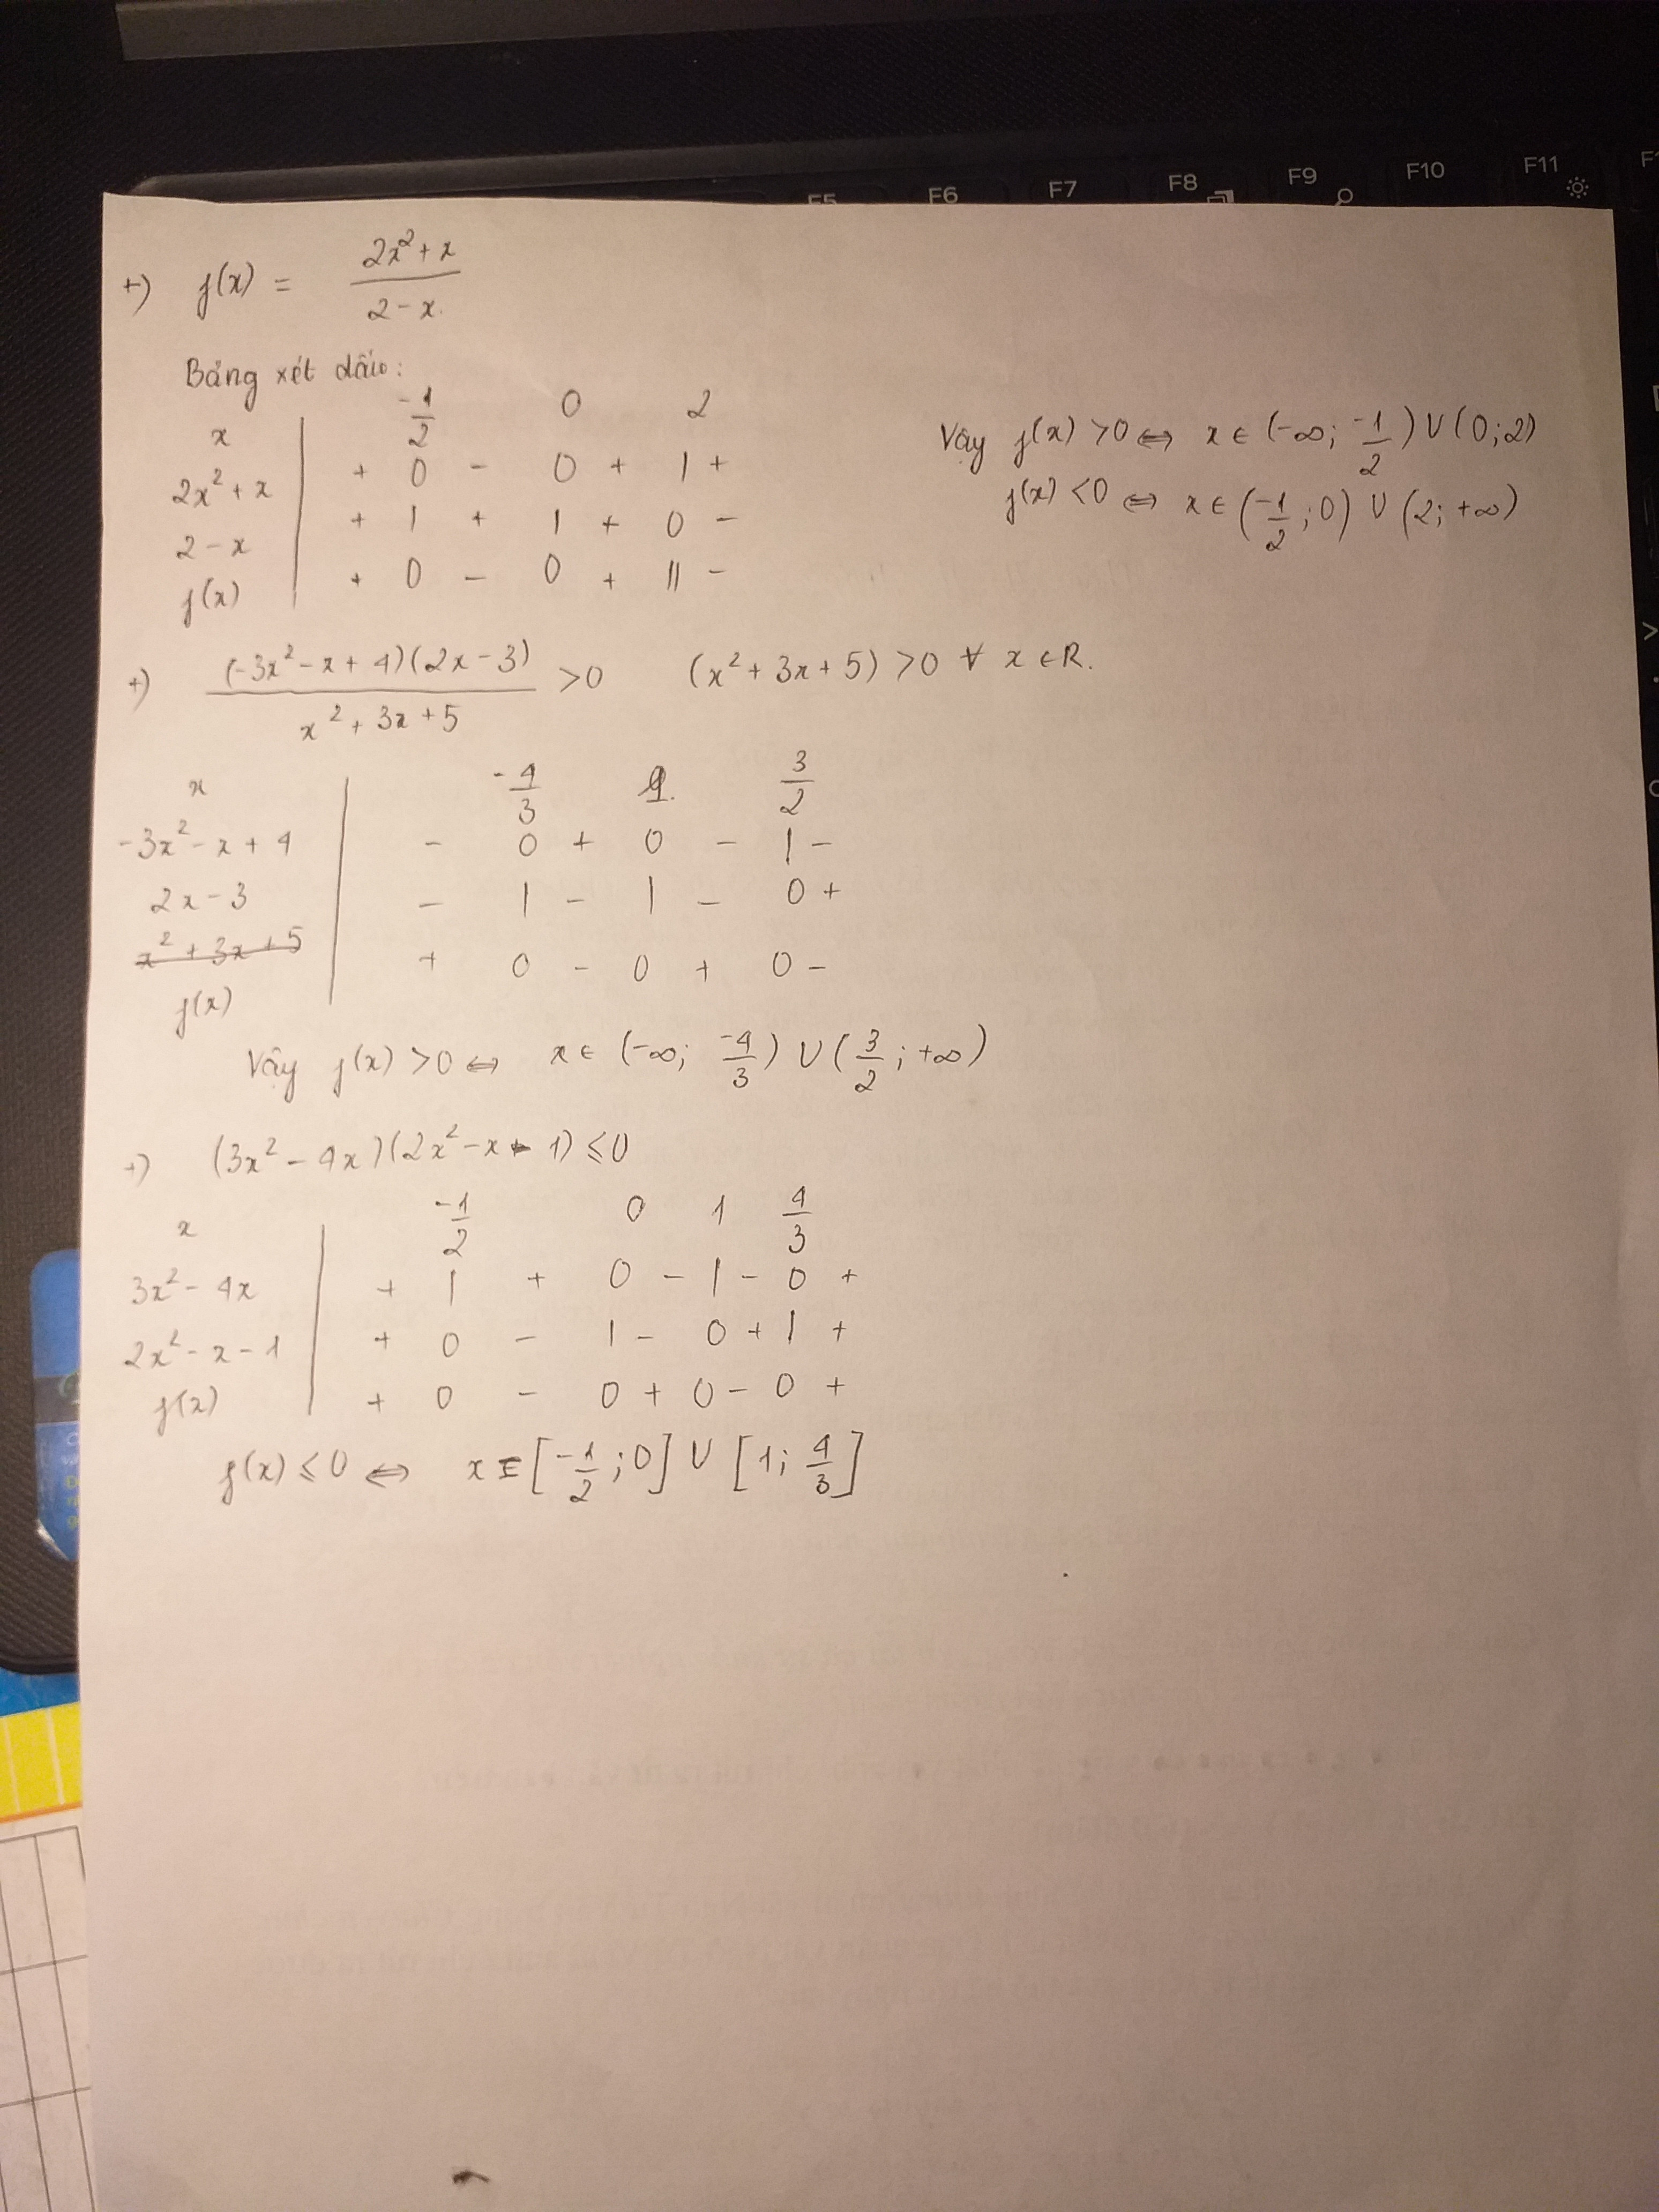 F5 F6 F7 F8 F9 F10 F11
+) f(x) = (2x² + x)/(2 - x)
Bảng xét dấu:
x | -1/2 0 2
2x² + x | + 0 - 0 + | +
2 - x | + | + | + 0 -
f(x) | + 0 - 0 + || -
Vậy f(x) > 0 ⇔ x ∈ (-∞; -1/2) ∪ (0; 2)
f(x) < 0 ⇔ x ∈ (-1/2; 0) ∪ (2; +∞)
+) (-3x² - x + 4)(2x - 3)/(x² + 3x + 5) > 0 (x² + 3x + 5) > 0 ∀ x ∈ R.
x | -4/3 1 3/2
-3x² - x + 4 | - 0 + 0 - | -
2x - 3 | - | - | - 0 +
x² + 3x + 5
f(x) | + 0 - 0 + 0 -
Vậy f(x) > 0 ⇔ x ∈ (-∞; -4/3) ∪ (3/2; +∞)
+) (3x² - 4x)(2x² - x - 1) ≤ 0
x | -1/2 0 1 4/3
3x² - 4x | + | + 0 - | - 0 +
2x² - x - 1 | + 0 - | - 0 + | +
f(x) | + 0 - 0 + 0 - 0 +
f(x) ≤ 0 ⇔ x ∈ [-1/2; 0] ∪ [1; 4/3]